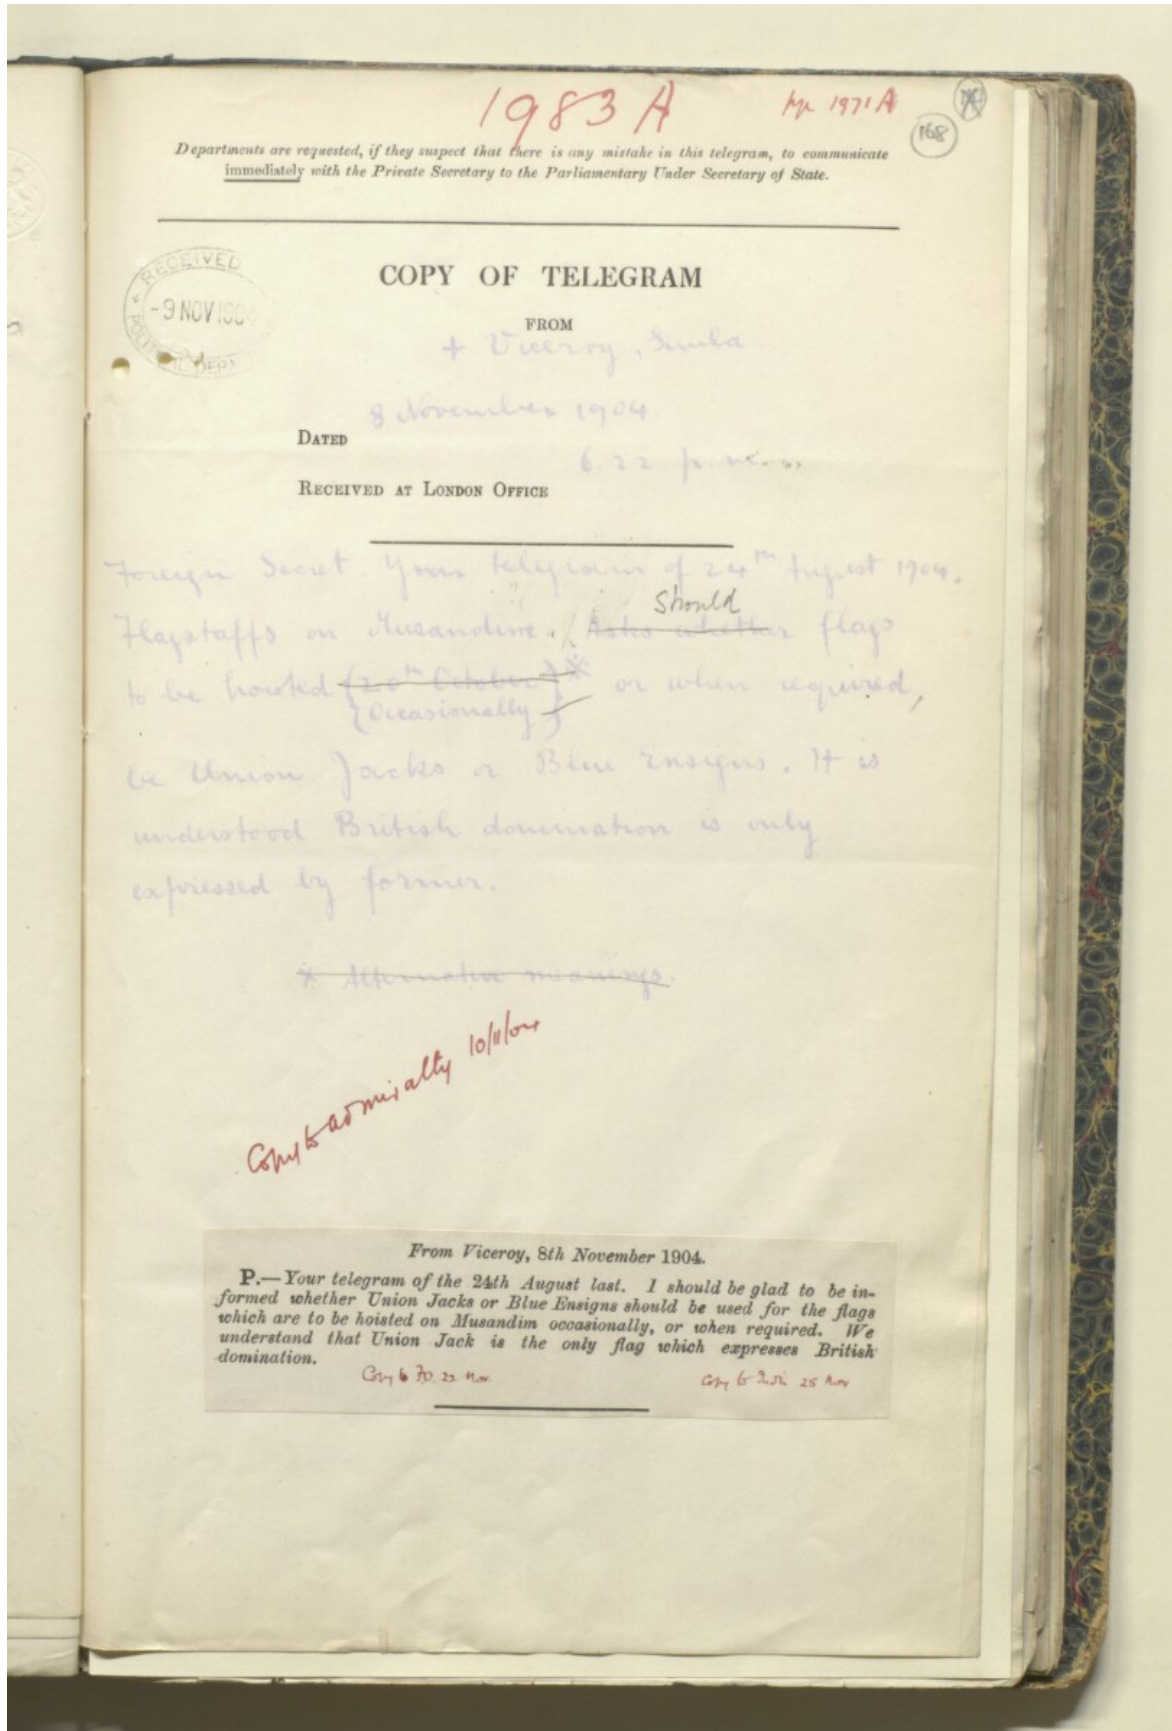 1983 A
1971 A
168
Departments are requested, if they suspect that there is any mistake in this telegram, to communicate
immediately with the Private Secretary to the Parliamentary Under Secretary of State.
RECEIVED
-9 NOV 1904
POLITICAL DEPT
COPY OF TELEGRAM
FROM
+ Viceroy, Simla
8 November 1904
DATED
6.22 p.m.
RECEIVED AT LONDON OFFICE
Foreign Secret. Your telegram of 24th August 1904.
should
Flagstaffs on Musandim. Asks whether flags
to be hoisted {20th October}* or when required,
{Occasionally}
be Union Jacks or Blue Ensigns. It is
understood British domination is only
expressed by former.
* Alternative meanings.
Copy to Admiralty 10/11/04
From Viceroy, 8th November 1904.
P.—Your telegram of the 24th August last. I should be glad to be in-
formed whether Union Jacks or Blue Ensigns should be used for the flags
which are to be hoisted on Musandim occasionally, or when required. We
understand that Union Jack is the only flag which expresses British
domination.
Copy to FO. 22 Nov.
Copy to India 25 Nov